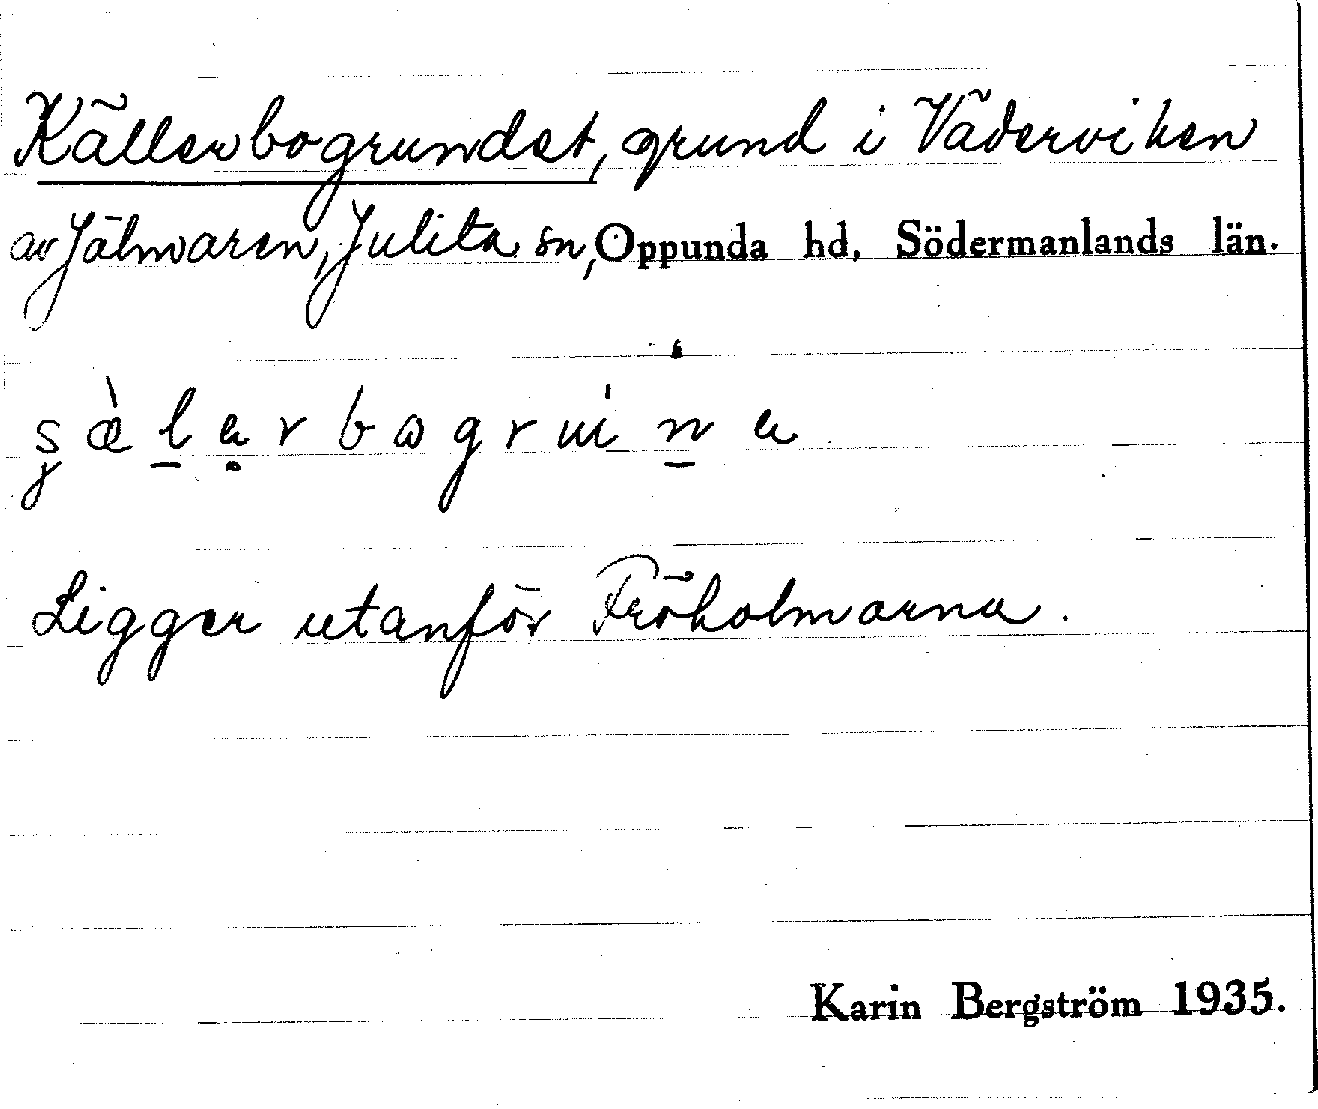 Källerbogrundet, grund i Väderviken
av Jälmaren, Julita sn, Oppunda hd, Södermanlands län.
Ligger utanför Fröholmarna.
Karin Bergström 1935.